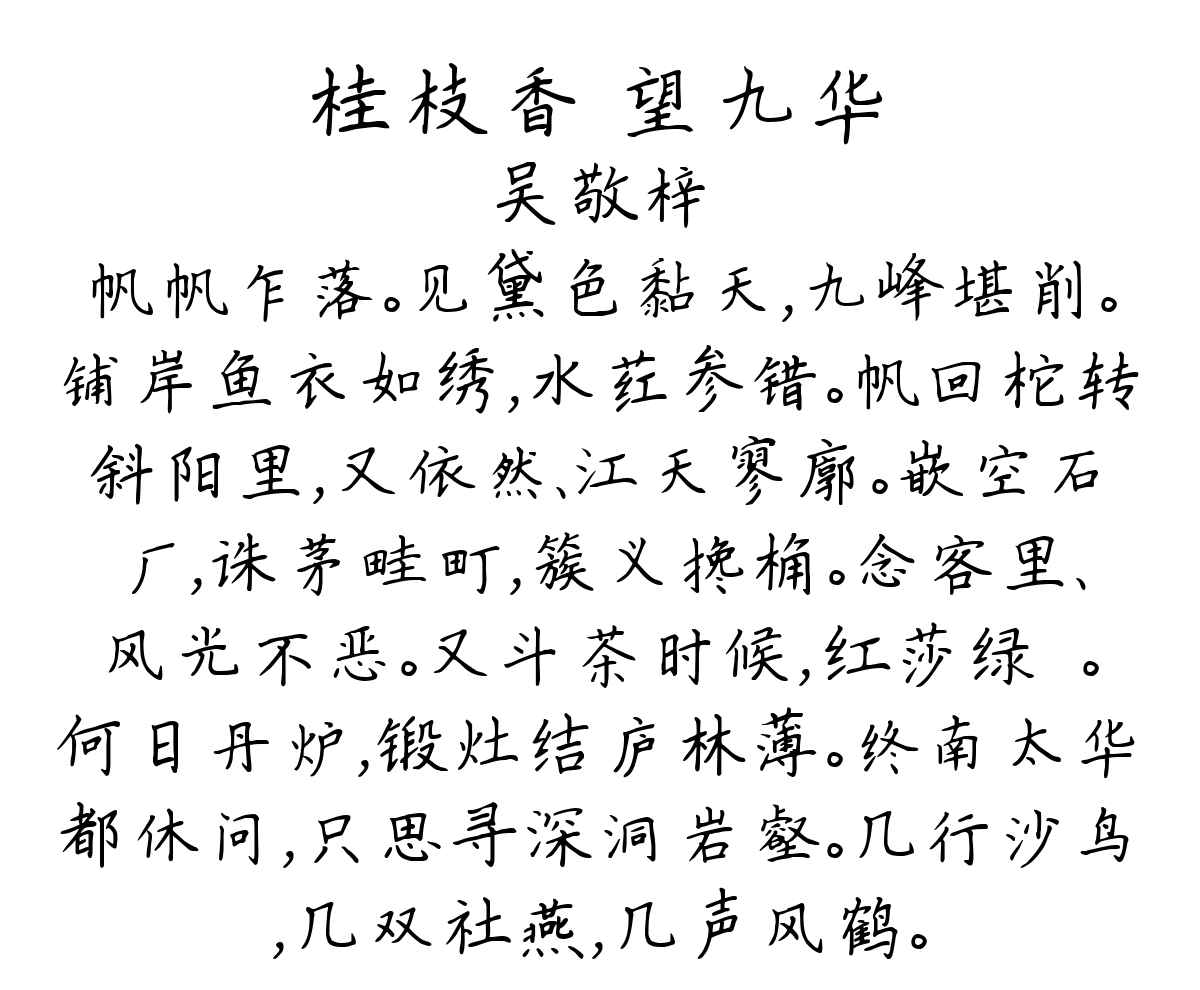 桂枝香 望九华
吴敬梓
帆帆乍落。见黛色黏天,九峰堪削。
铺岸鱼衣如绣,水荭参错。帆回柁转
斜阳里,又依然、江天寥廓。嵌空石
厂,诛茅畦町,簇义搀桷。念客里、
风光不恶。又斗茶时候,红莎绿 。
何日丹炉,锻灶结庐林薄。终南太华
都休问,只思寻深洞岩壑。几行沙鸟
,几双社燕,几声风鹤。